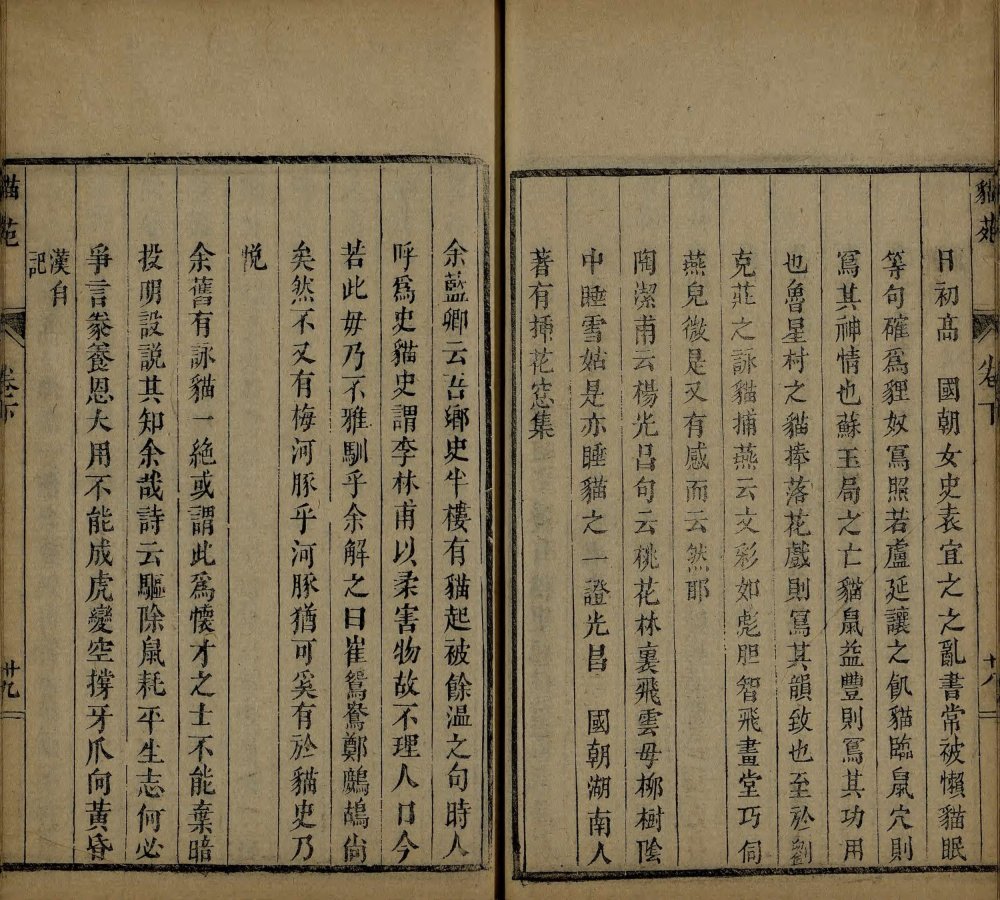 貓苑
卷下
十八
日初高　國朝女史袁宜之之亂書常被懶貓眠
等句確爲貍奴寫照若盧延讓之飢貓臨鼠穴則
寫其神情也蘇玉局之亡貓鼠益豐則寫其功用
也魯星村之貓捧落花戲則寫其韻致也至於劉
克莊之詠貓捕燕云文彩如彪胆智飛畫堂巧伺
燕兒微是又有感而云然耶
陶潔甫云楊光昌句云桃花林裏飛雲母柳樹陰
中睡雪姑是亦睡貓之一證光昌　國朝湖南人
著有插花窓集
余藍卿云吾鄉史半樓有貓起被餘溫之句時人
呼爲史貓史謂李林甫以柔害物故不理人口今
若此毋乃不雅馴乎余解之曰崔鴛鴦鄭鷓鴣尙
矣然不又有梅河豚乎河豚猶可奚有於貓史乃
悅
余舊有詠貓一絶或謂此爲懷才之士不能棄暗
投明設說其知余哉詩云驅除鼠耗平生志何必
爭言豢養恩大用不能成虎變空撐牙爪向黃昏
漢自
記
貓苑
卷下
廿九